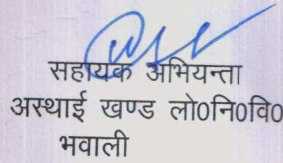 सहायक अभियन्ता
अस्थाई खण्ड लो0नि0वि0
भवाली